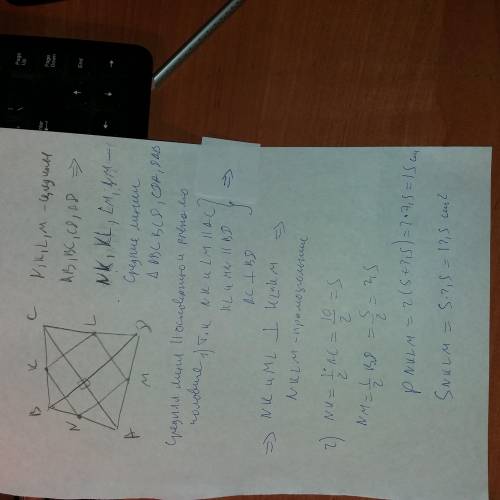 N, K, L, M - середины
AB, BC, CD, AD ⇒
NK, KL, LM, NM —
средние линии
Δ ABC, BCD, CDA, DAB
B K C
N L
A M D
Средняя линия || основанию и равна его
половине 1) т.к. NK и LM || AC
KL и MN || BD } ⇒
AC ⊥ BD
⇒ NK и ML ⊥ KL и NM ⇒
NKLM - прямоугольник
2) NK = 1/2 AC = 10/2 = 5
NM = 1/2 BD = 5/2 = 2,5
P NKLM = 2(5+2,5) = 2·7,5 = 15 см
S NKLM = 5·2,5 = 12,5 cm²
Page Up
Page Down
End